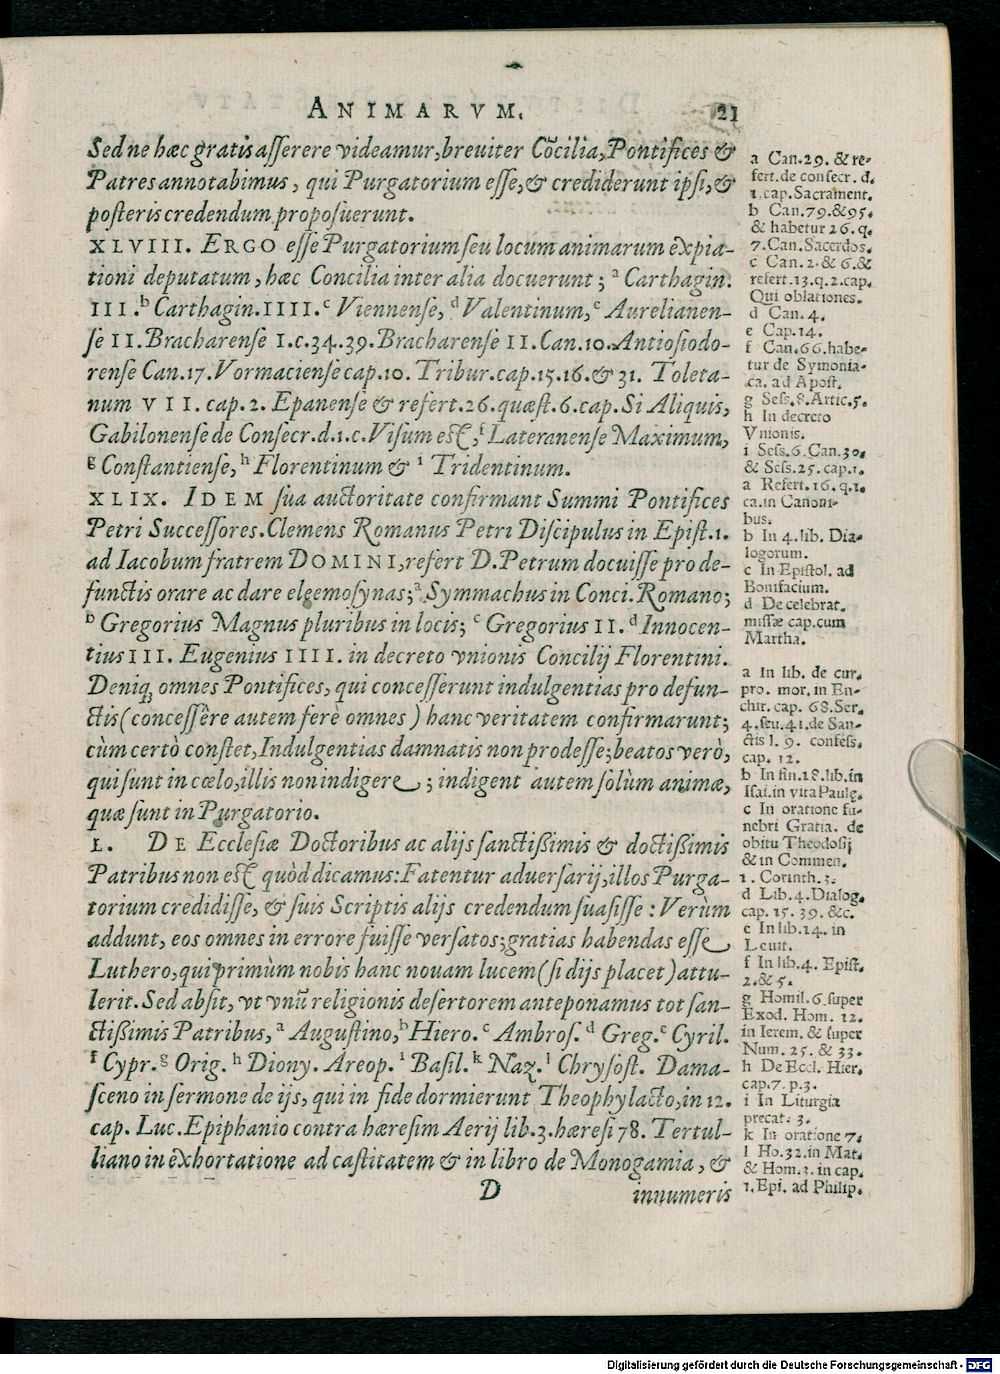 ANIMARVM. 21
Sed ne hæc gratis aſſerere videamur, breuiter Cõcilia, Pontifices &
Patres annotabimus, qui Purgatorium eſſe, & crediderunt ipſi, &
poſteris credendum propoſuerunt.
XLVIII. ERGO eſſe Purgatorium ſeu locum animarum expia-
tioni deputatum, hæc Concilia inter alia docuerunt; ª Carthagin.
III. ᵇ Carthagin. IIII. ᶜ Viennenſe, ᵈ Valentinum, ᵉ Aurelianen-
ſe II. Bracharenſe I. c. 34. 39. Bracharenſe II. Can. 10. Antioſiodo-
renſe Can. 17. Vormacienſe cap. 10. Tribur. cap. 15. 16. & 31. Toleta-
num VII. cap. 2. Epanenſe & refert. 26. quæſt. 6. cap. Si Aliquis,
Gabilonenſe de Conſecr. d. 1. c. Viſum eſt, ᶠ Lateranenſe Maximum,
ᵍ Conſtantienſe, ʰ Florentinum & ⁱ Tridentinum.
XLIX. IDEM ſua auctoritate confirmant Summi Pontifices
Petri Succeſſores. Clemens Romanus Petri Diſcipulus in Epiſt. 1.
ad Iacobum fratrem DOMINI, refert D. Petrum docuiſſe pro de-
functis orare ac dare eleemoſynas; ª Symmachus in Conci. Romano;
ᵇ Gregorius Magnus pluribus in locis; ᶜ Gregorius II. ᵈ Innocen-
tius III. Eugenius IIII. in decreto vnionis Concilij Florentini.
Deniq; omnes Pontifices, qui conceſſerunt indulgentias pro defun-
ctis (conceſſêre autem ferè omnes) hanc veritatem confirmarunt;
cùm certò conſtet, Indulgentias damnatis non prodeſſe; beatos verò,
qui ſunt in cœlo, illis non indigere; indigent autem ſolùm animæ,
quæ ſunt in Purgatorio.
L. DE Eccleſiæ Doctoribus ac alijs ſanctißimis & doctißimis
Patribus non eſt quòd dicamus: Fatentur aduerſarij, illos Purga-
torium credidiſſe, & ſuis Scriptis alijs credendum ſuaſiſſe: Verùm
addunt, eos omnes in errore fuiſſe verſatos; gratias habendas eſſe
Luthero, qui primùm nobis hanc nouam lucem (ſi dijs placet) attu-
lerit. Sed abſit, vt vnũ religionis deſertorem anteponamus tot ſan-
ctißimis Patribus, ª Auguſtino, ᵇ Hiero. ᶜ Ambroſ. ᵈ Greg. ᵉ Cyril.
ᶠ Cypr. ᵍ Orig. ʰ Diony. Areop. ⁱ Baſil. ᵏ Naz. ˡ Chryſoſt. Dama-
ſceno in ſermone de ijs, qui in fide dormierunt Theophylacto, in 12.
cap. Luc. Epiphanio contra hæreſim Aerij lib. 3. hæreſi 78. Tertul-
liano in exhortatione ad caſtitatem & in libro de Monogamia, &
D innumeris
a Can. 29. & re-
fert. de conſecr. d.
1. cap. Sacrament.
b Can. 79. & 95.
& habetur 26. q.
7. Can. Sacerdos.
c Can. 2. & 6. &
refert. 13. q. 2. cap.
Qui oblationes.
d Can. 4.
e Cap. 14.
f Can. 66. habe-
tur de Symonia-
ca. ad Apoſt.
g Seſſ. 8. Artic. 5.
h In decreto
Vnionis.
i Seſſ. 6. Can. 30.
& Seſſ. 25. cap. 1.
a Refert. 16. q. 1.
ca. in Canoni-
bus.
b In 4. lib. Dia-
logorum.
c In Epiſtol. ad
Bonifacium.
d De celebrat.
miſſæ cap. cum
Martha.
a In lib. de cur.
pro. mor. in En-
chir. cap. 68. Ser.
4. ſeu. 41. de San-
ctis l. 9. confeſſ.
cap. 12.
b In fin. 18. lib. in
Iſai. in vita Paulę.
c In oratione fu-
nebri Gratia. de
obitu Theodoſij
& in Commen.
1. Corinth. 3.
d Lib. 4. Dialog.
cap. 15. 39. &c.
e In lib. 14. in
Leuit.
f In lib. 4. Epiſt.
2. & 5.
g Homil. 6. ſuper
Exod. Hom. 12.
in Ierem. & ſuper
Num. 25. & 33.
h De Eccl. Hier.
cap. 7. p. 3.
i In Liturgia
precat. 3.
k In oratione 7.
l Ho. 32. in Mat.
& Hom. 3. in cap.
1. Epi. ad Philip.
Digitalisierung gefördert durch die Deutsche Forschungsgemeinschaft - DFG